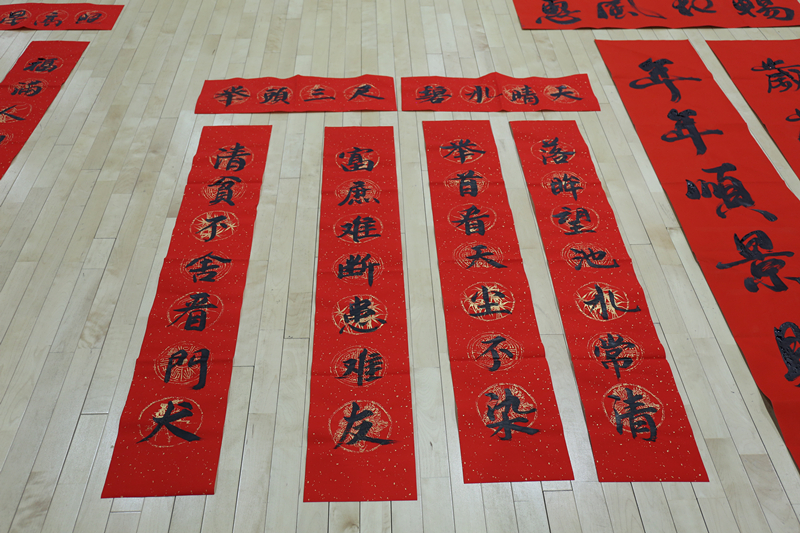 举頭三尺
碧水晴天
清貧不舍看門犬
富庶难断患难友
举首看天尘不染
落眸望池水常清
年年順景
惠風
歲
福